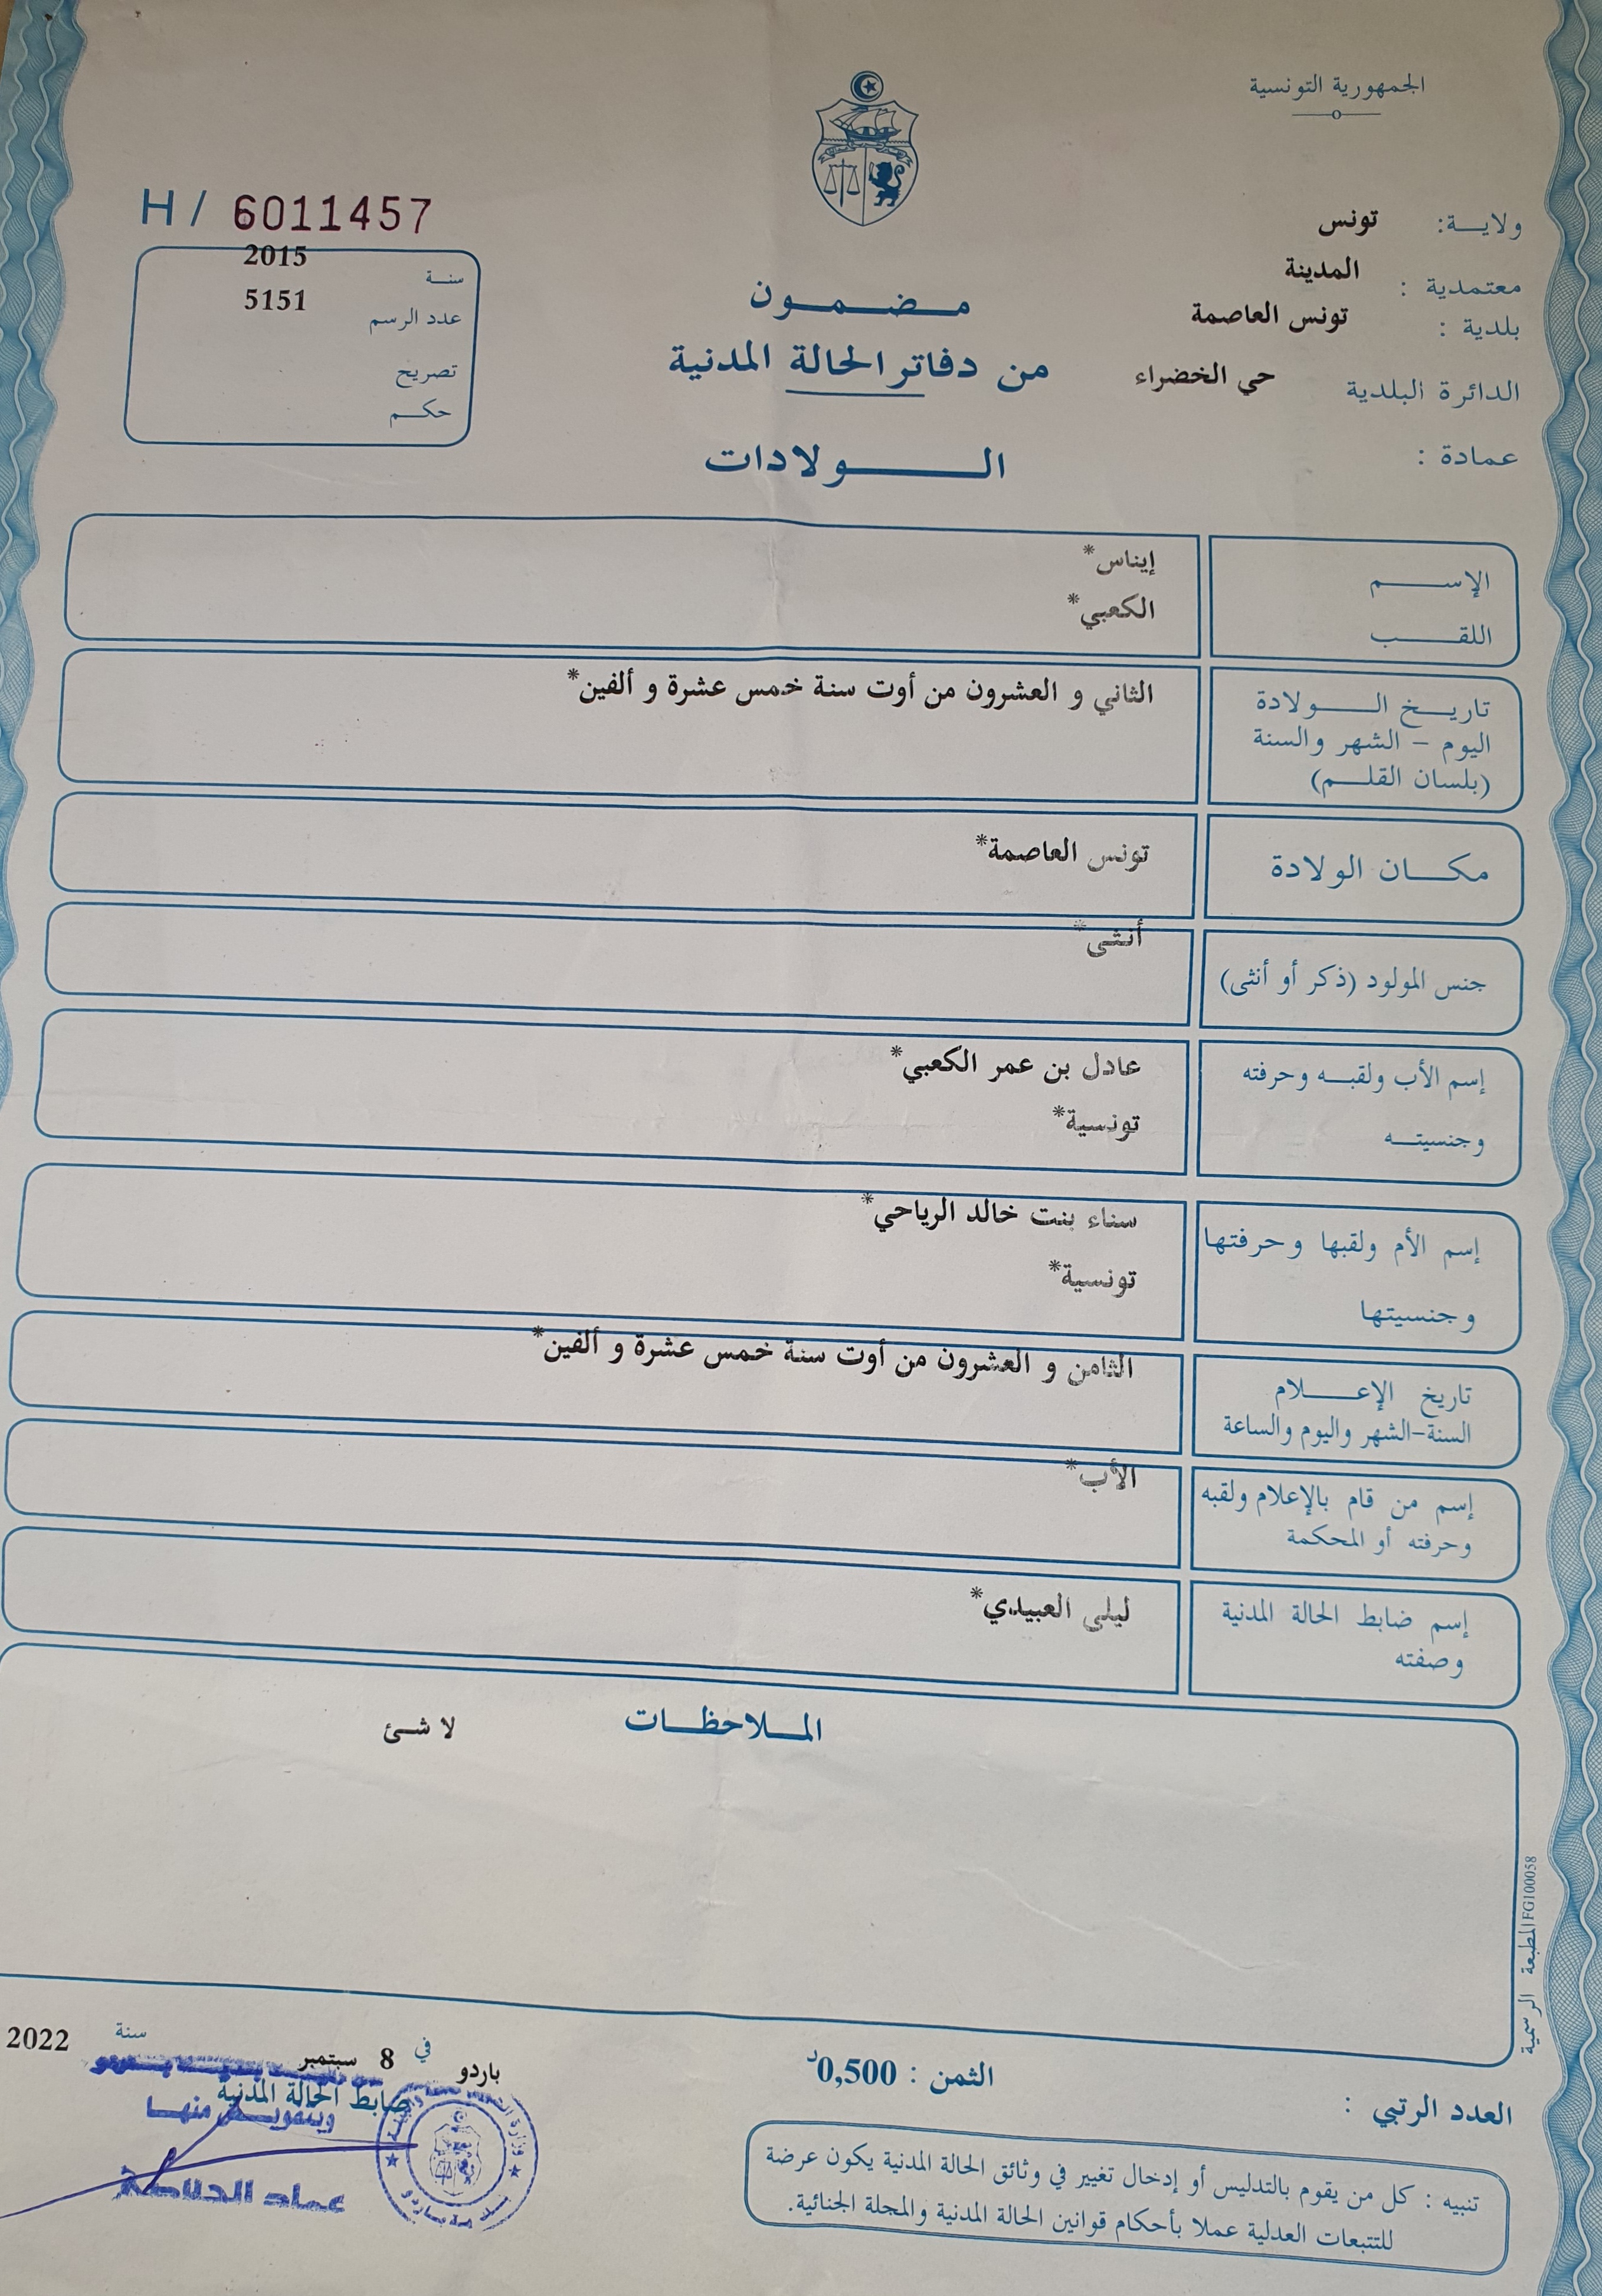 الجمهورية التونسية
ولايـــة: تونس
معتمدية : المدينة
بلدية : تونس العاصمة
الدائرة البلدية حي الخضراء
عمادة :
H / 6011457
سنـة 2015
عدد الرسم 5151
تصريح
حكـــم
مـضـمـون
من دفاتر الحالة المدنية
الـــولادات
الإســـــم إيناس*
اللقــــب الكعبي*
تاريـخ الـــولادة الثاني و العشرون من أوت سنة خمس عشرة و ألفين*
اليوم - الشهر والسنة
(بلسان القلــم)
مكـــان الولادة تونس العاصمة*
جنس المولود (ذكر أو أنثى) أنثى*
إسم الأب ولقبــه وحرفته عادل بن عمر الكعبي*
وجنسيتــه تونسية*
إسم الأم ولقبها وحرفتها سناء بنت خالد الرياحي*
وجنسيتها تونسية*
تاريخ الإعـــلام الثامن و العشرون من أوت سنة خمس عشرة و ألفين*
السنة-الشهر واليوم والساعة
إسم من قام بالإعلام ولقبه الأب*
وحرفته أو المحكمة
إسم ضابط الحالة المدنية ليلى العبيدي*
وصفته
المــلاحظــات لا شئ
المطبعة الرسمية FG100058
باردو في 8 سبتمبر سنة 2022
ضابط الحالة المدنية
وبتفويــض منهـا
عماد
الثمن : 0,500د
العدد الرتبي :
تنبيه : كل من يقوم بالتدليس أو إدخال تغيير في وثائق الحالة المدنية يكون عرضة
للتتبعات العدلية عملا بأحكام قوانين الحالة المدنية والمجلة الجنائية.